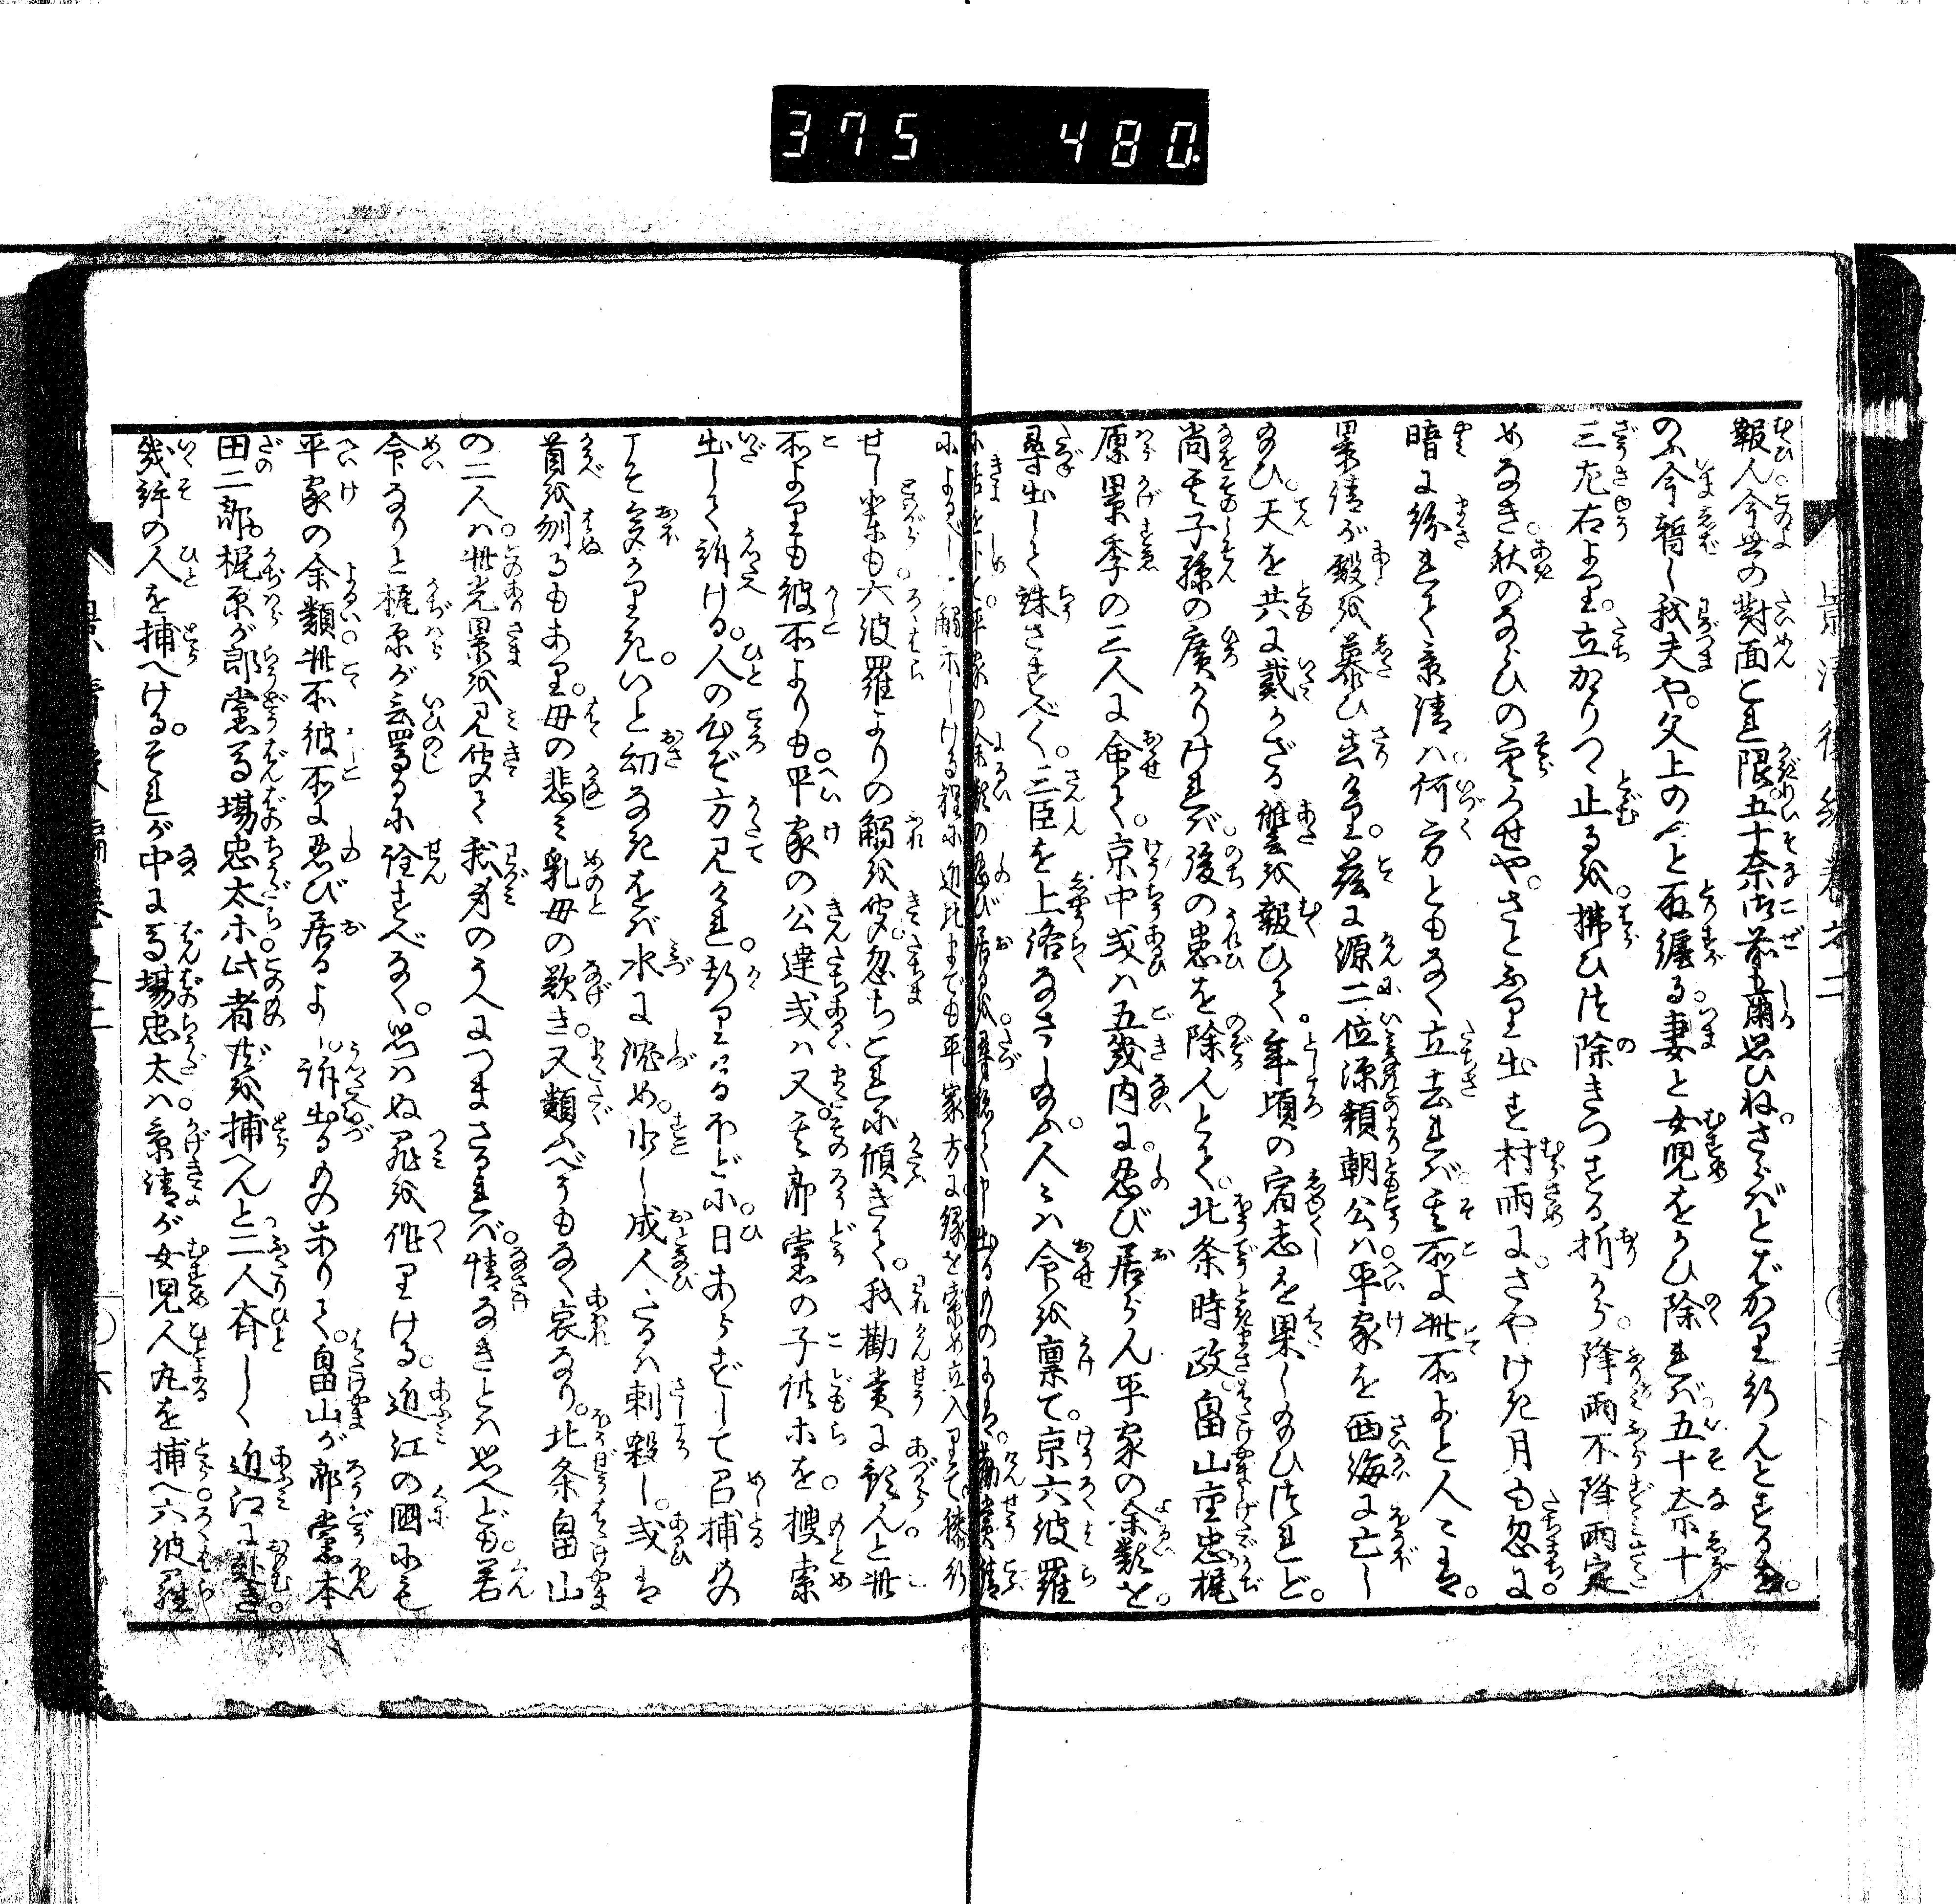 375 480
報人今世の對面とこれ限五十奈御前も爾思ひねさらばとばかり行んとするを
のふ今暫し我夫や父上の人と取纏る妻と女児をかひ除れば五十奈十
三左右より立かゝりつゝ止るを拂ひ除きつする折から降雨不降雨定
めなき秋のならひの空くせやさとふり出す村雨にさやけき月も忽に
暗に紛れて景清ハ何方ともなく立去れば其所よ此所よと人〻は
景清が殿を慕ひ去けり茲に源二位源頼朝公ハ平家を西海に亡し
給ひ天を共に戴かざる讐を報ひて年頃の宿志を果し給ひけれど
尚其子孫の廣かりければ後の患を除んとて北条時政畠山重忠梶
原景季の三人に命て京中或ハ五畿内に忍び居らん平家の余類を
尋出して誅さすべく三臣を上洛なさしめ給ふ人〻ハ命を禀て京六波羅
に居をしめて平家の余類の忍び居るを尋探して申出るものには勸賞請
によるべしと觸示しける程に近比までも平家方に縁を索め立入りて諛行
せし輩も六波羅よりの觸を聞忽ちこれに傾きて我勸賞に預んと此
所よりも彼所よりも平家の公達或ハ又其郎黨の子供ホを搜索
出して訴ける人の心ぞ方見けれ斯りけるほどに日あらずして召捕もの
いと多かりきいと幼なきをば水に沈め少し成人たるハ刺殺し或は
首を刎るもあり母の悲ミ乳母の歎き又類ふべうもなく哀なり北条畠山
の二人ハ此光景を見聞て我身のうへにつまさるれバ情なきとハ思へども君
命なりと梶原が云罵るに詮すべなく思ハぬ罪を作りける近江の國にも
平家の余類此所彼所に忍び居るよし訴出るものありて畠山が郎黨本
田二郎梶原が郎黨馬場忠太ホ此者共を捕へんと二人斉しく近江に赴き
幾許の人を捕へけるそれが中に馬場忠太ハ景清が女児人丸を捕へ六波羅